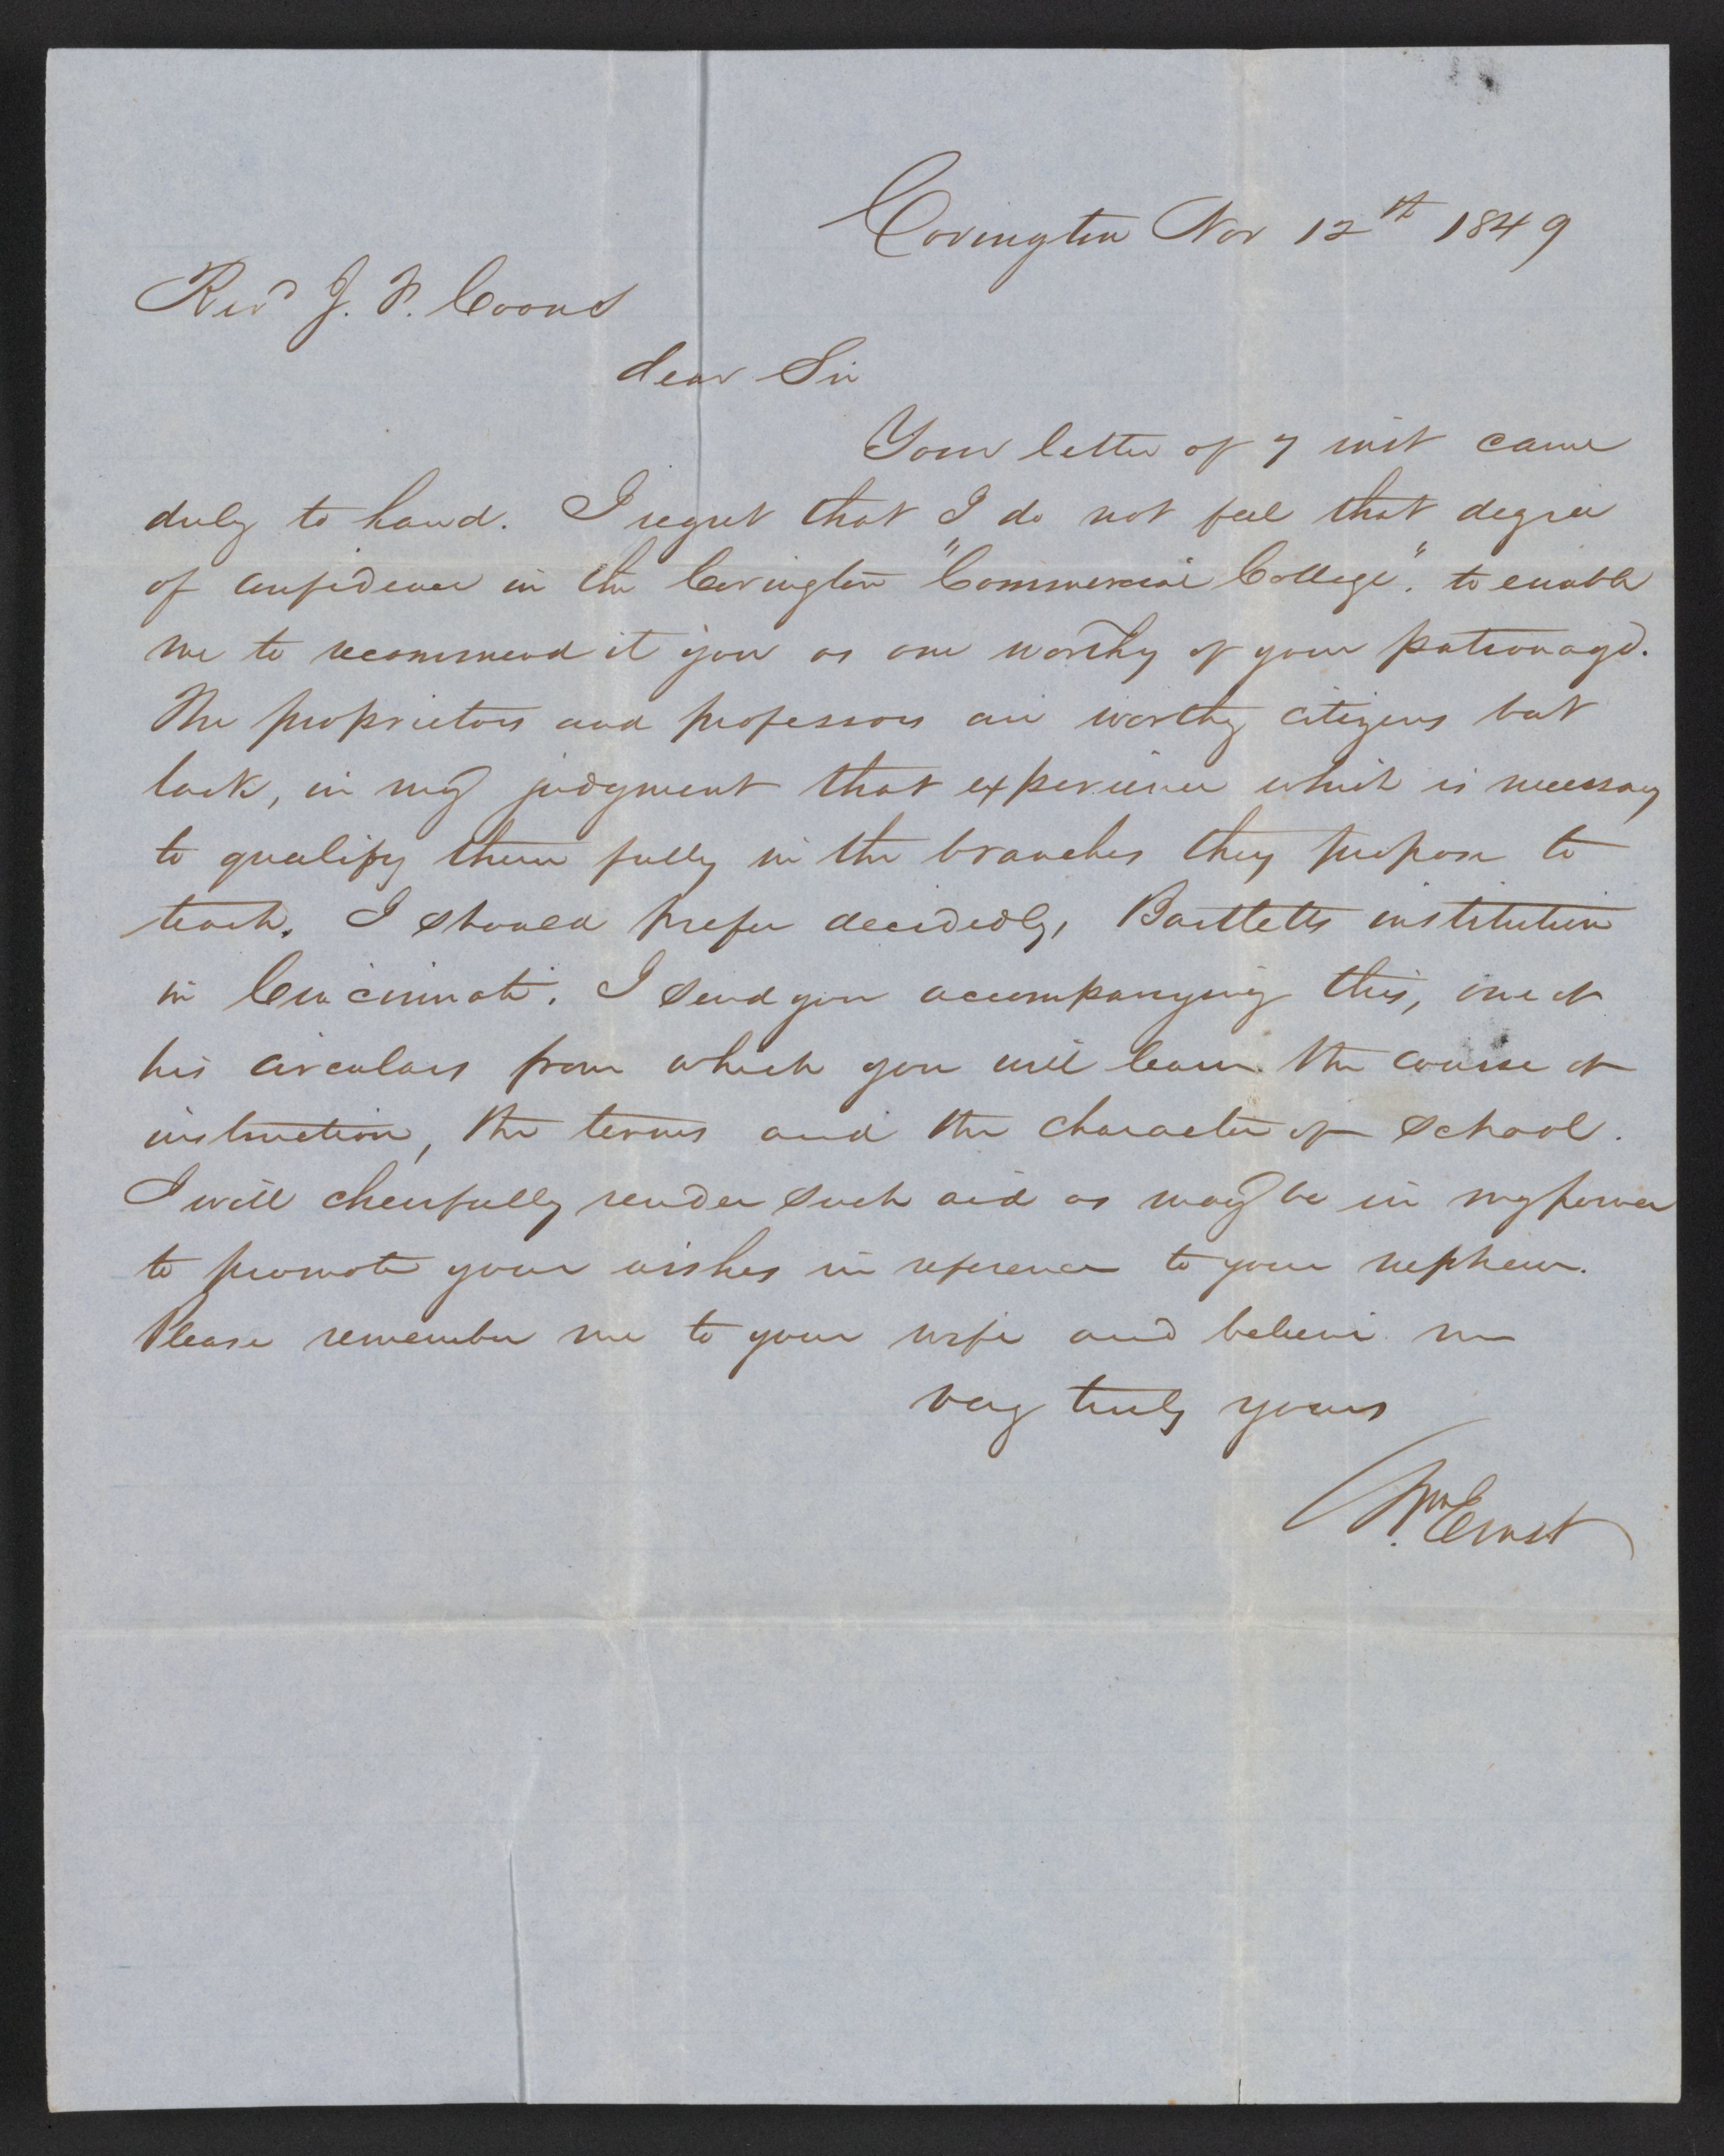 Covington Nov 12th 1849
Revd J. F. Coons
dear Sir
Your letter of 7 inst came
duly to hand. I regret that I do not feel that degree
of confidence in the Covington "Commercial College". to enable
me to recommend it you as one worthy of your patronage.
The proprietors and professors are worthy citizens but
lack, in my judgment that experience which is necessary
to qualify them fully in the branches they propose to
teach. I should prefer decidedly, Bartletts institution
in Cincinnati. I send you accompanying this, one of
his circulars from which you will learn the course of
instruction, the terms and the character of school.
I will cheerfully render such aid as may be in my power
to promote your wishes in reference to your nephew.
Please remember me to your wife and believe me
very truly yours
Wm Ernst